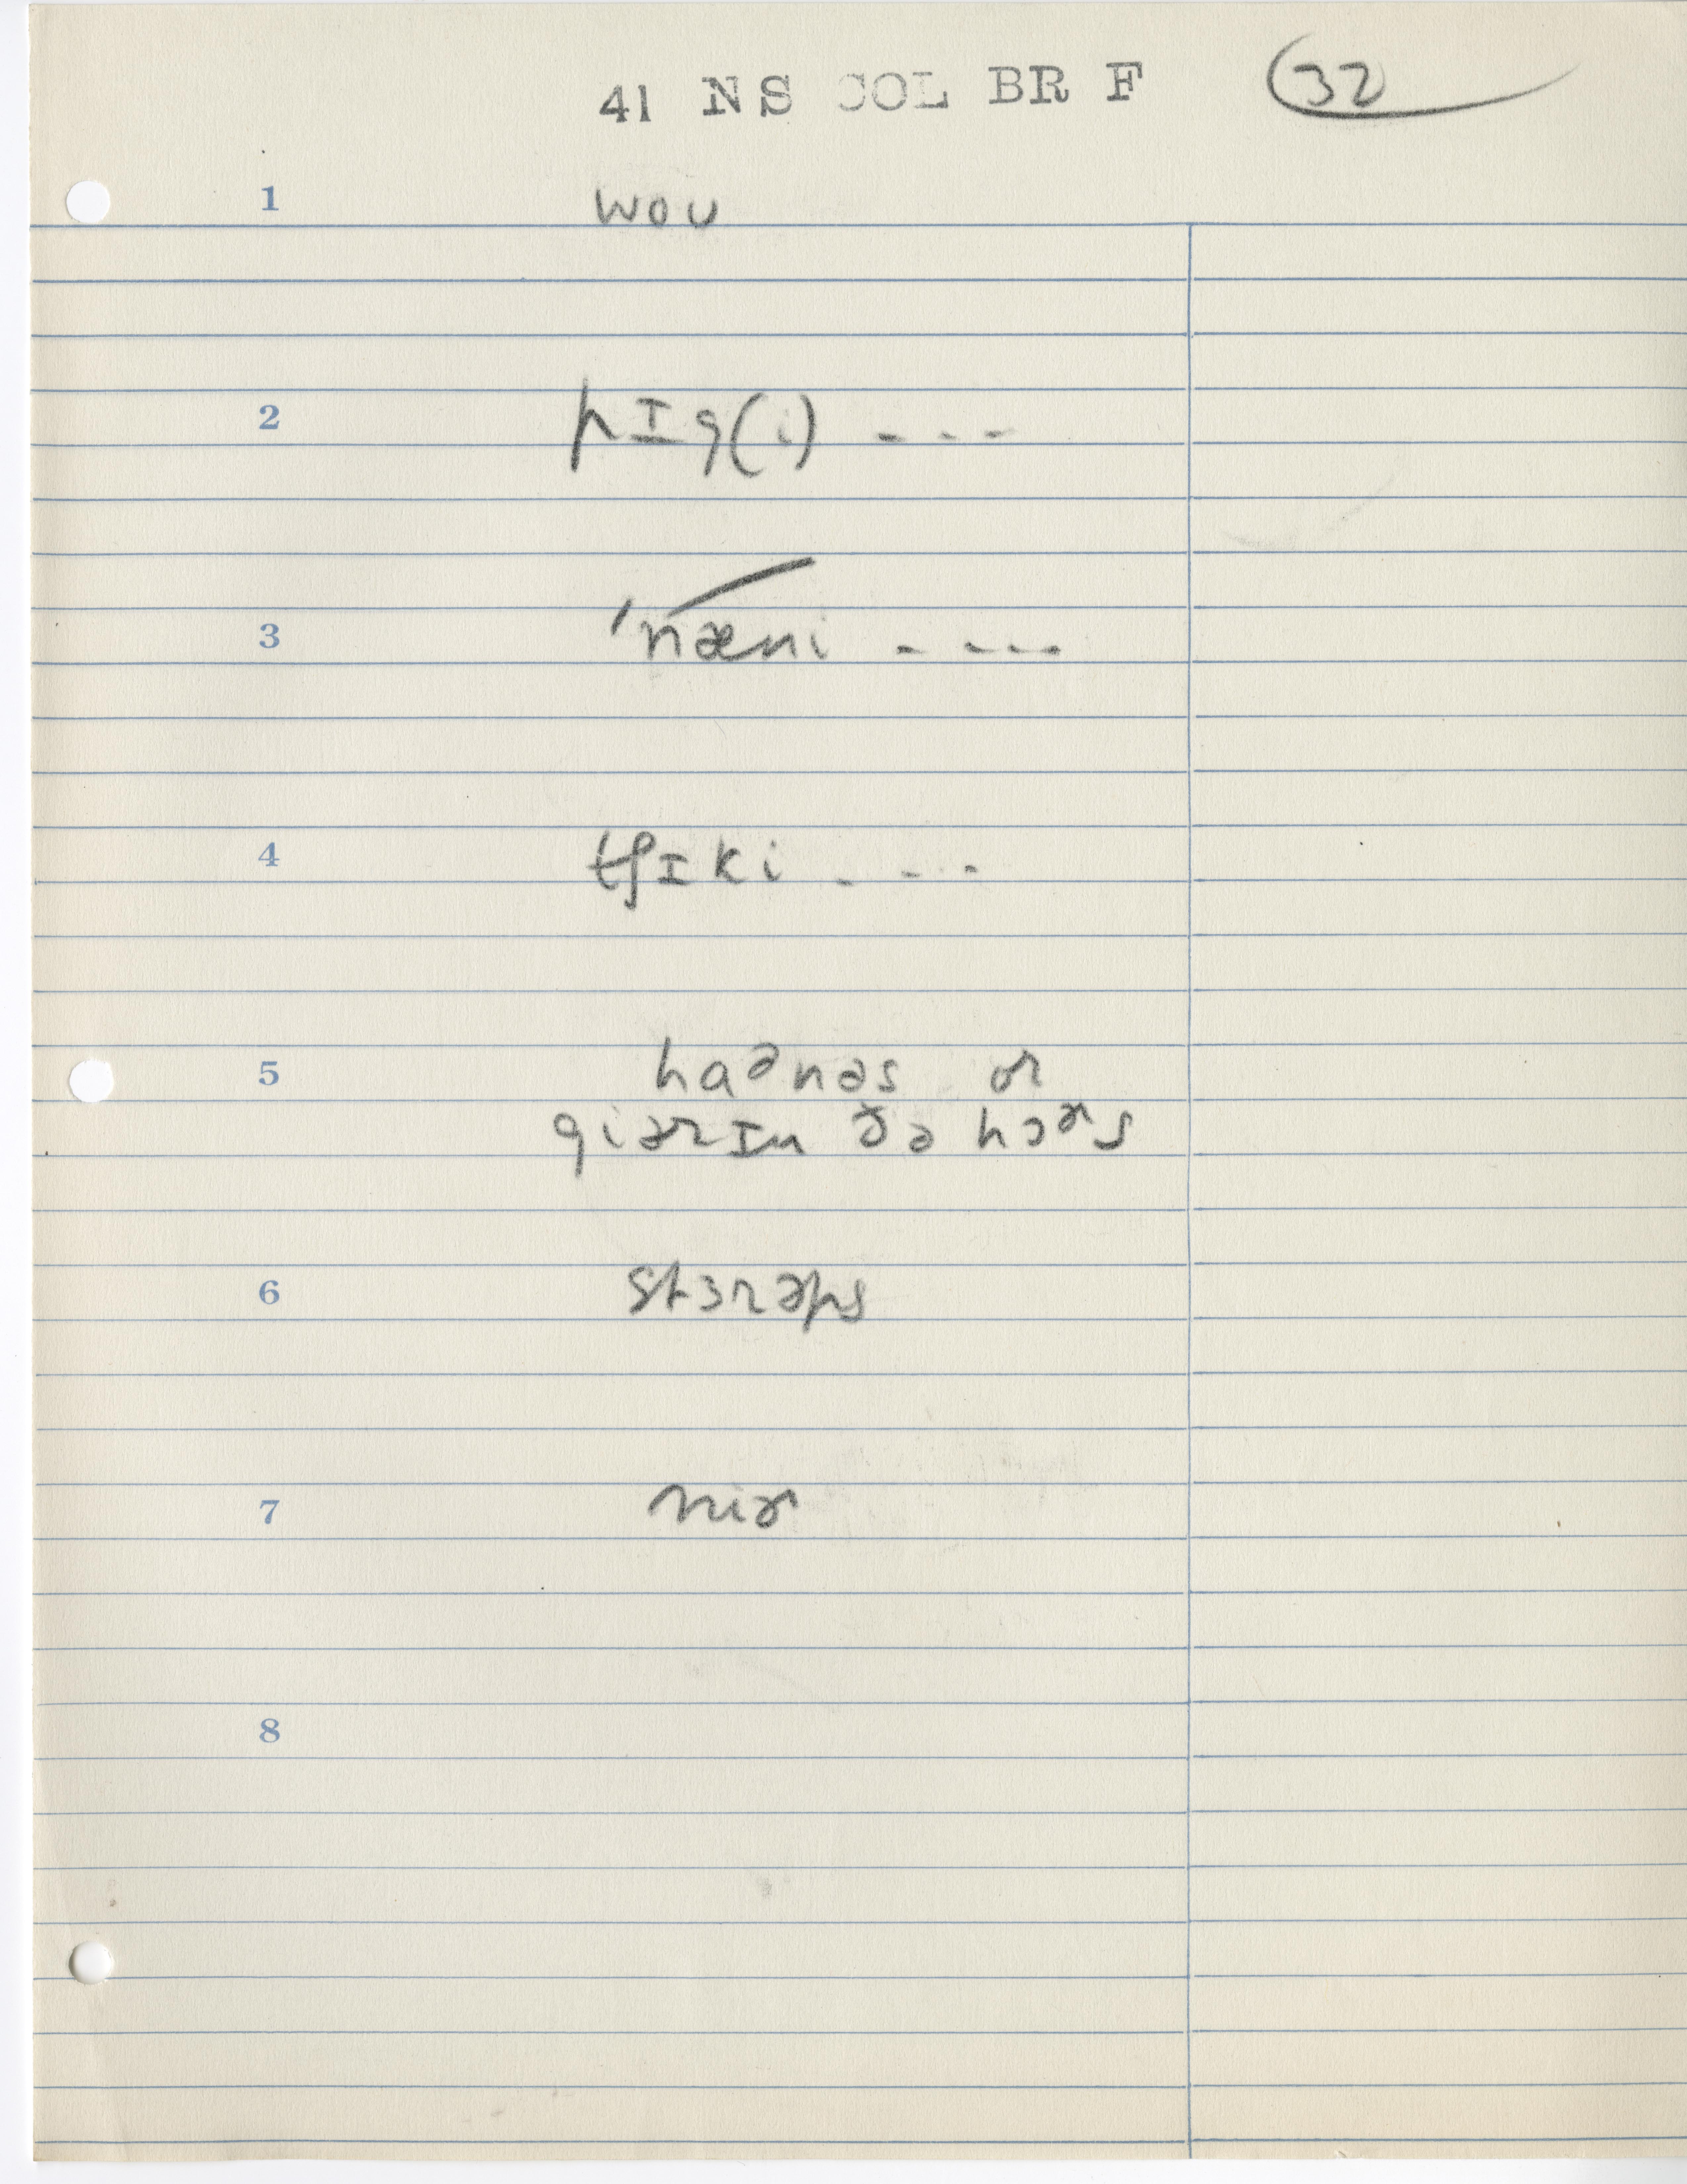 41 NS COL BR F 32
1 woʊ
2 pɪg(i) ----
3 'næni ----
4 tʃɪki ----
5 haᵊnəs or
giərɪn ðə hɔɚs
6 stɜrəps
7 niɚ
8